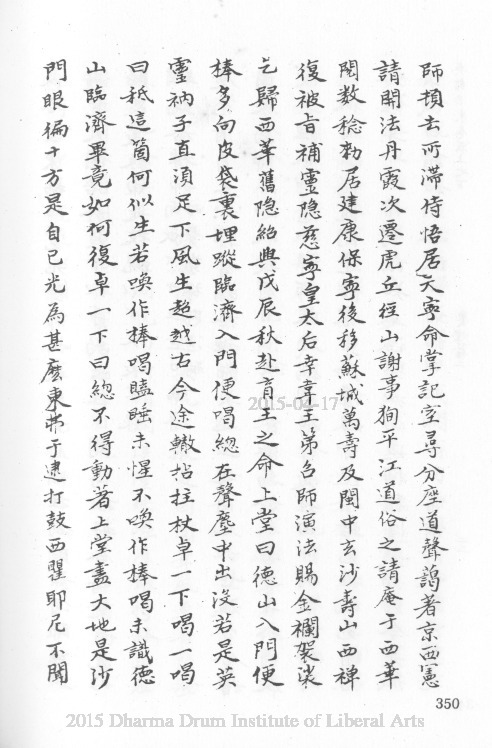 師頓去所滯待悟居天寧命掌記室尋分座道聲藹著京西憲
請開法丹霞次遷虎丘徑山謝事狥平江道俗之請庵于西華
閱数稔勑居建康保寧後移蘇城萬壽及閩中玄沙壽山西禪
復被旨補靈隐慈寧皇太后幸韋王第召師演法賜金襴袈裟
乞歸西華舊隐紹興戊辰秋赴育王之命上堂曰德山入門便
棒多向皮袋裏埋蹤臨濟入門便喝總在聲塵中出沒若是英
靈衲子直須足下風生超越古今途轍拈拄杖卓一下喝一喝
曰秪這箇何似生若喚作棒喝瞌睡未惺不喚作棒喝未識德
山臨濟畢竟如何復卓一下曰總不得動著上堂盡大地是沙
門眼徧十方是自己光為甚麽東弗于逮打鼓西瞿耶尼不聞
2015-04-17
350
2015 Dharma Drum Institute of Liberal Arts